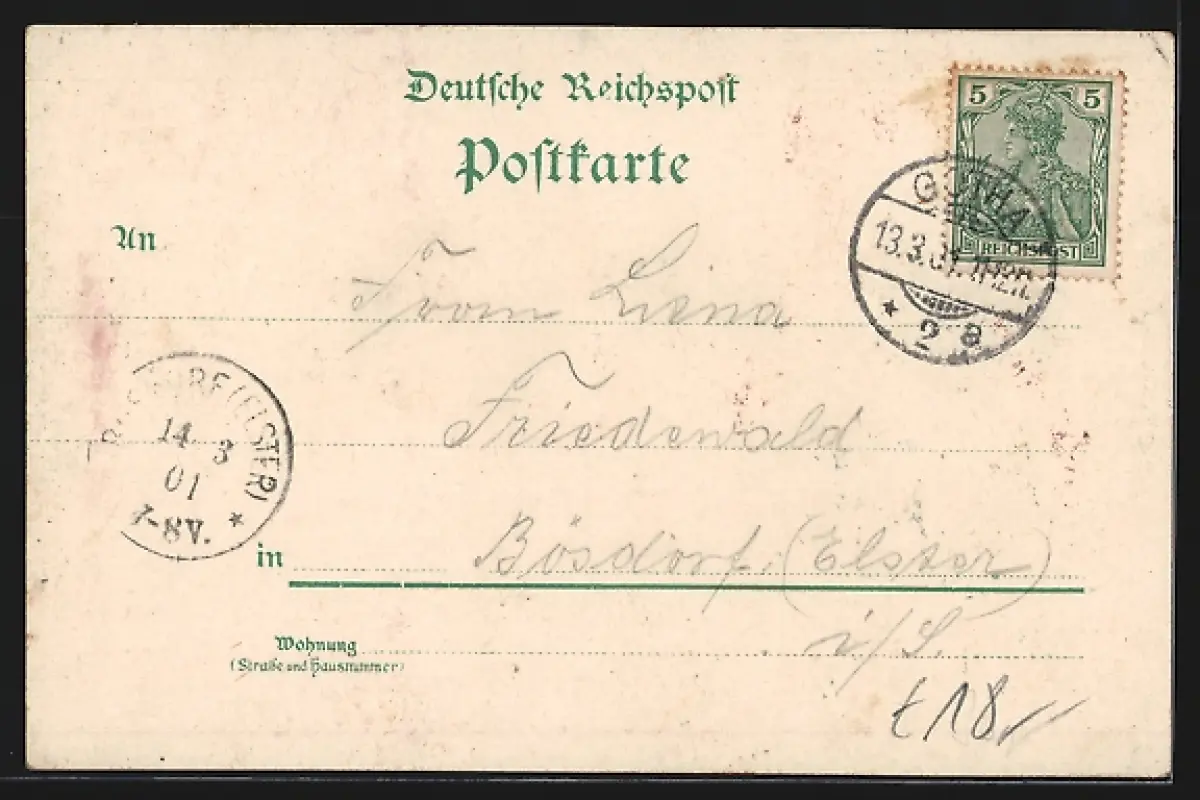 Deutsche Reichspost
Postkarte
5 5
REICHSPOST
GOTHA
13.3.01. 11-12N.
* 2 a
An
From Lena
Friedewald
(ELSTER)
14 3
01
7-8V. *
in Bösdorf (Elster)
i/S.
Wohnung
(Straße und Hausnummer)
t18